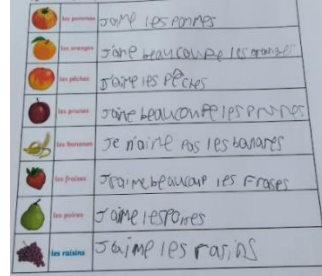 les pommes J'aime les pommes
les oranges J'aime beaucoupe les oranges
les pêches J'aime les Pêches
les prunes J'aime beaucoupe les prunes
les bananes Je n'aime Pas les bananes
les fraises J'aime beaucoup les Frases
les poires J'aime les Poires
les raisins J'aime les rasins